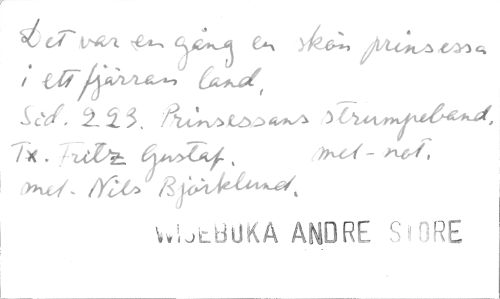 Det var en gång en skön prinsessa
i ett fjärran land,
Sid. 223. Prinsessans strumpeband.
Tx. Fritz Gustaf. mel-not.
mel. Nils Björklund.
WISEBUKA ANDRE STORE